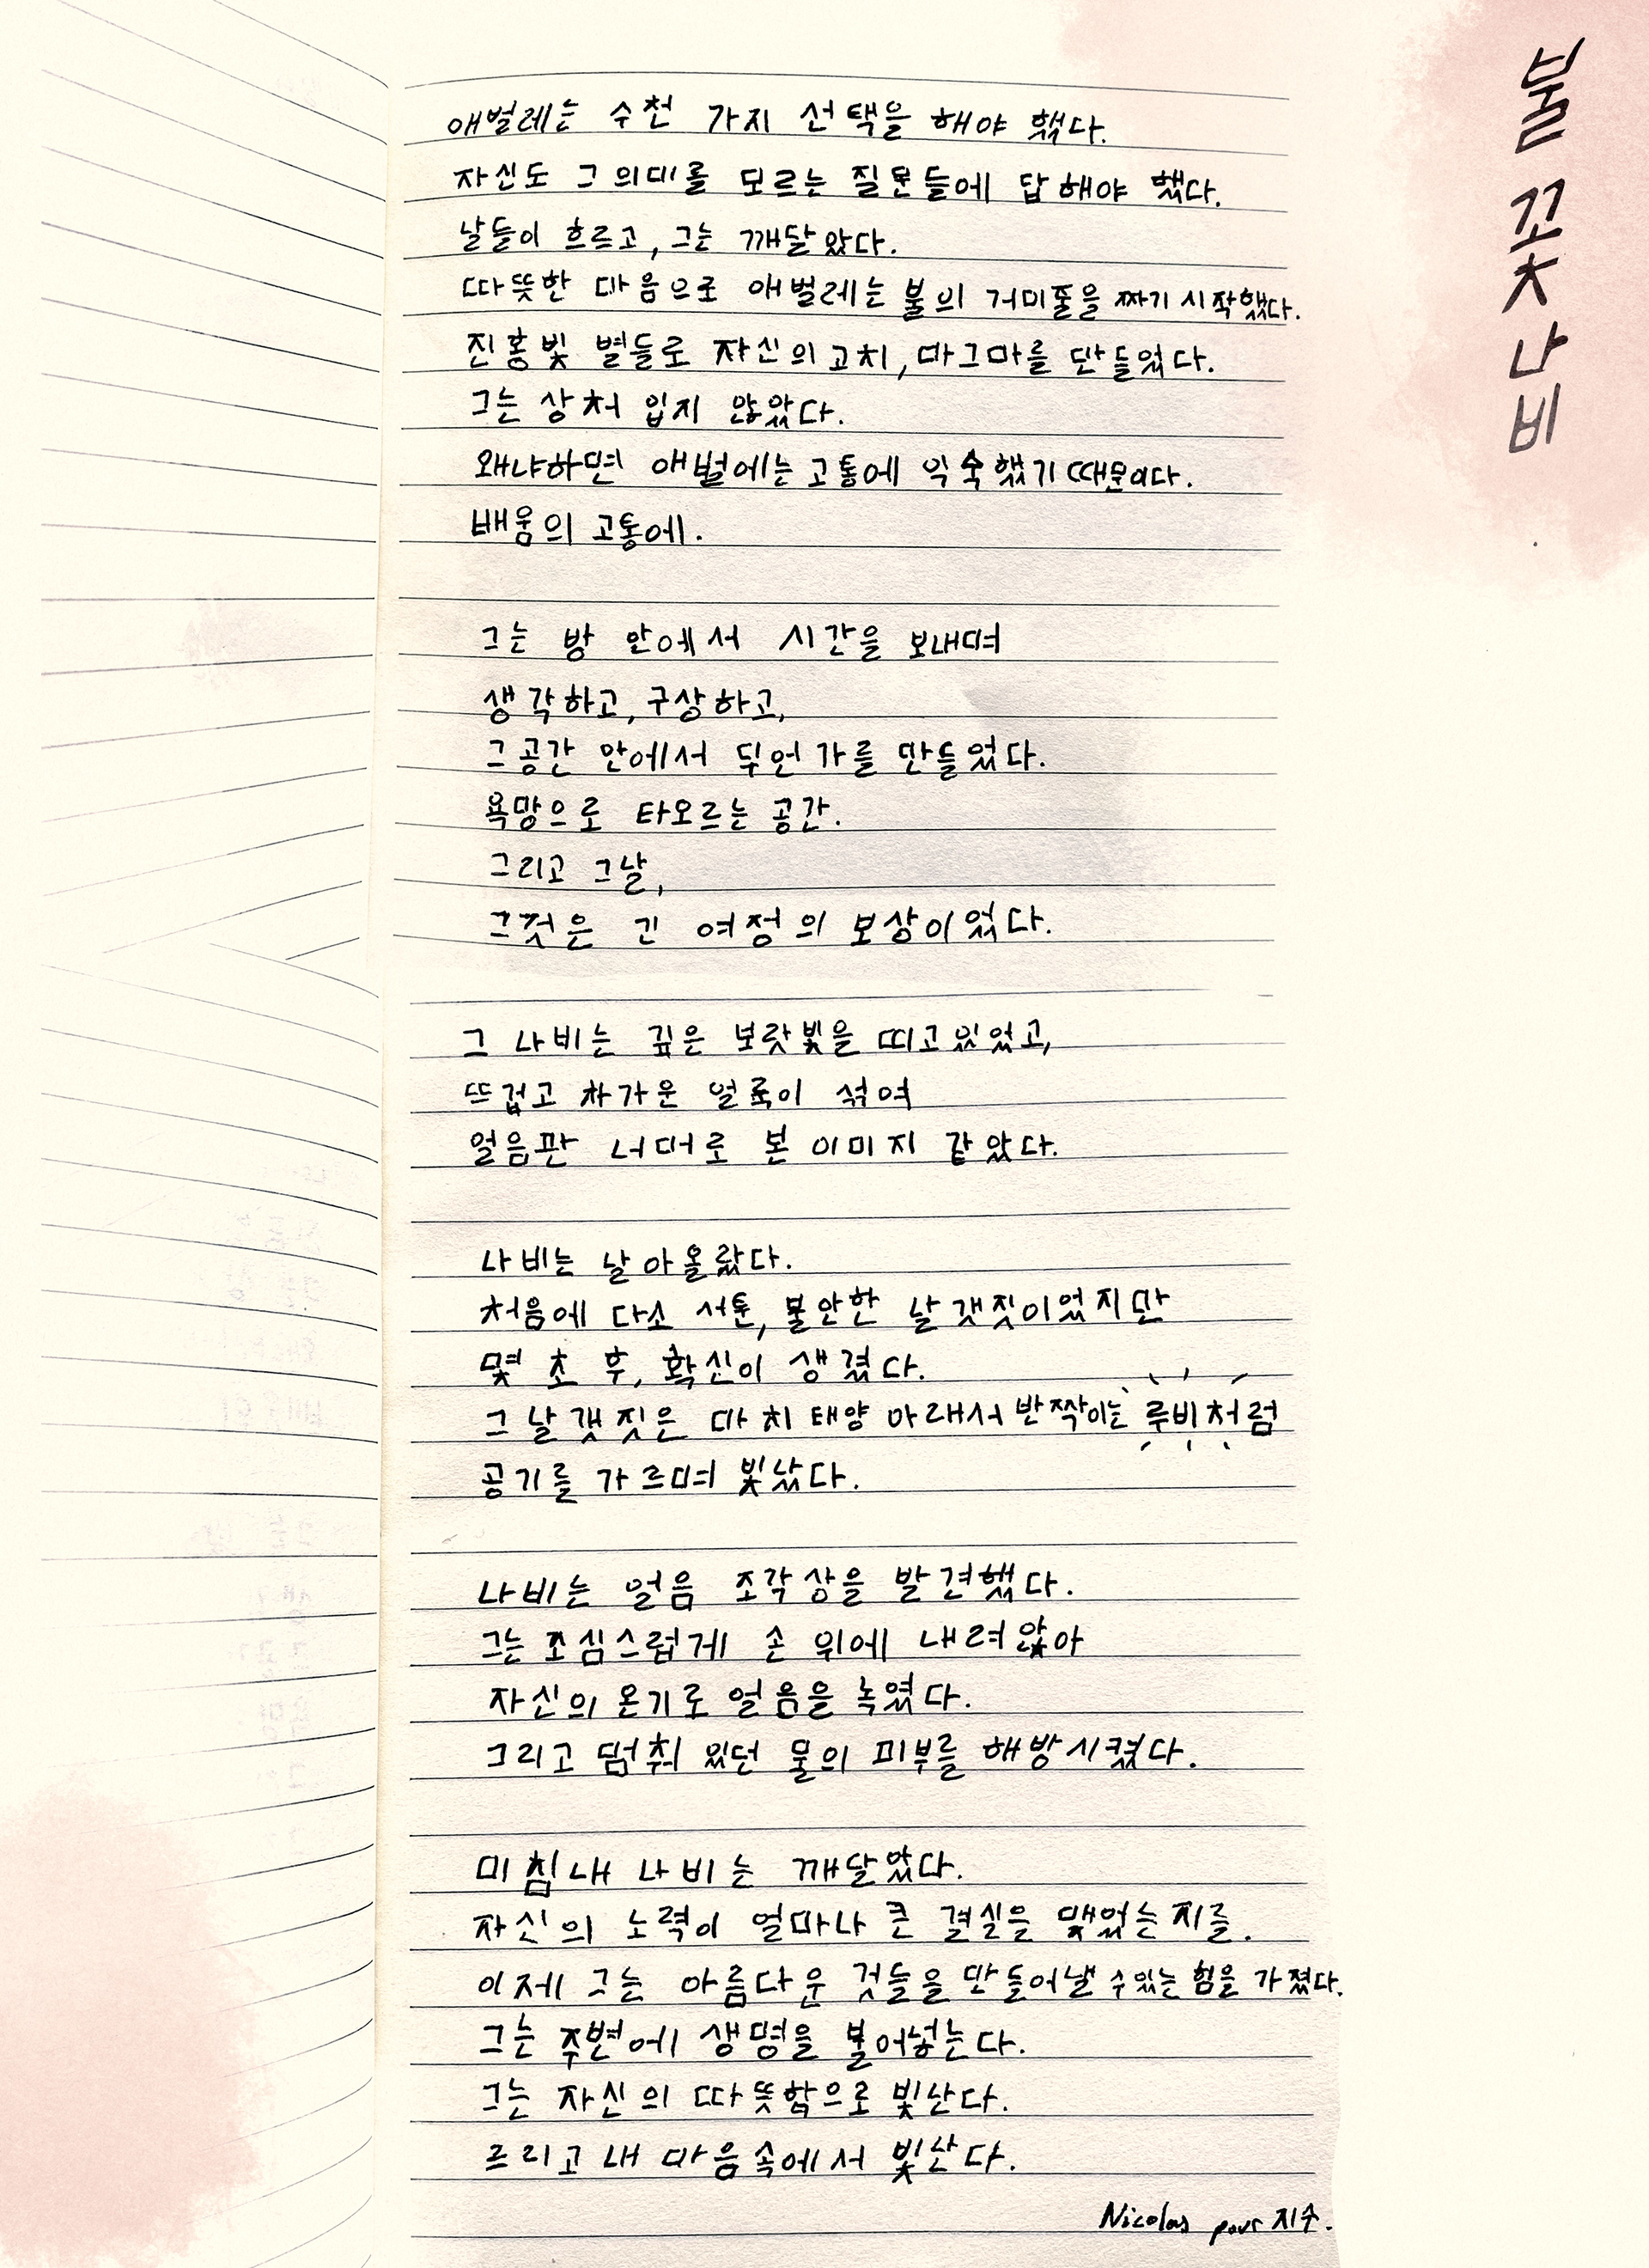 불꽃나비
애벌레는 수천 가지 선택을 해야 했다.
자신도 그 의미를 모르는 질문들에 답해야 했다.
날들이 흐르고, 그는 깨달았다.
따뜻한 마음으로 애벌레는 불의 거미줄을 짜기 시작했다.
진홍빛 별들로 자신의 고치, 마그마를 만들었다.
그는 상처 입지 않았다.
왜냐하면 애벌에는 고통에 익숙했기 때문이다.
배움의 고통에.
그는 방 안에서 시간을 보내며
생각하고, 구상하고,
그 공간 안에서 무언가를 만들었다.
욕망으로 타오르는 공간.
그리고 그날,
그것은 긴 여정의 보상이었다.
그 나비는 깊은 보랏빛을 띠고 있었고,
뜨겁고 차가운 얼룩이 섞여
얼음판 너머로 본 이미지 같았다.
나비는 날아올랐다.
처음에 다소 서툰, 불안한 날갯짓이었지만
몇 초 후, 확신이 생겼다.
그 날갯짓은 마치 태양 아래서 반짝이는 루비처럼
공기를 가르며 빛났다.
나비는 얼음 조각상을 발견했다.
그는 조심스럽게 손 위에 내려앉아
자신의 온기로 얼음을 녹였다.
그리고 멈춰 있던 물의 피부를 해방시켰다.
미침내 나비는 깨달았다.
자신의 노력이 얼마나 큰 결실을 맺었는지를.
이제 그는 아름다운 것들을 만들어낼 수 있는 힘을 가졌다.
그는 주변에 생명을 불어넣는다.
그는 자신의 따뜻함으로 빛난다.
그리고 내 마음속에서 빛난다.
Nicolas pour 지수.